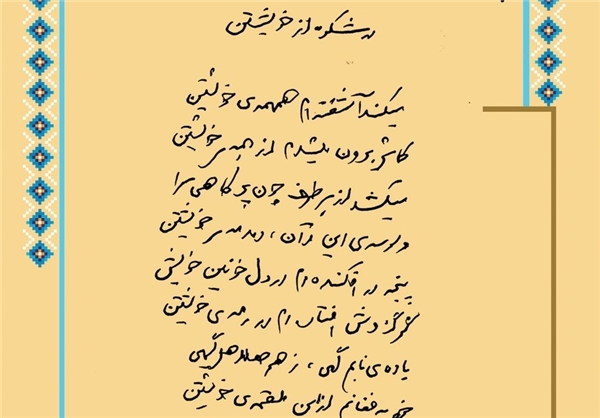 در شکوه از خویشتن
میکند آشفته‌ام همهمه‌ی خویشتن
کاش برون میشدم از همه‌ی خویشتن
میکشد از هر طرف چون پر کاهی مرا
وسوسه‌ی این و آن، دمدمه‌ی خویشتن
پنجه در افکنده‌ام در دل خونین خویش
گرگم و دوش افتاده‌ام در رمه‌ی خویشتن
باده‌ی نابم گهی، زهر هلاهل گهی
خود به فغانم از این ملقمه‌ی خویشتن